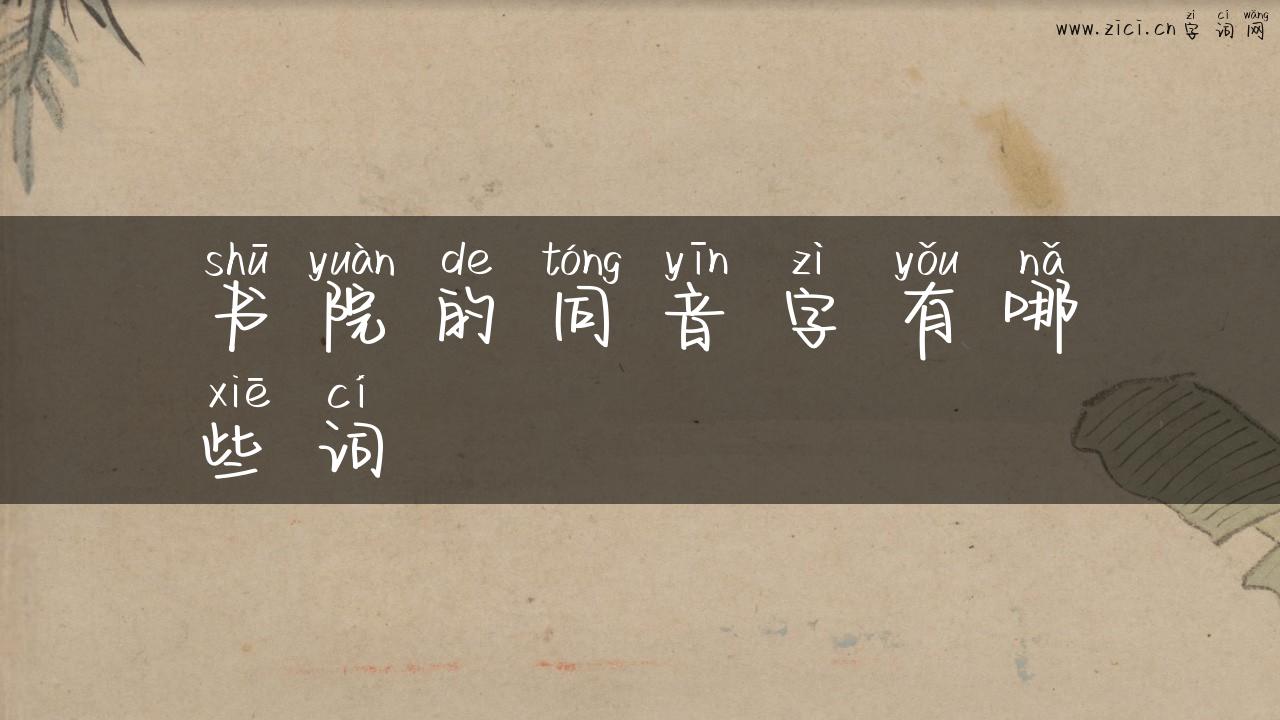 zì cí wǎng
www.zici.cn 字词网
shū yuàn de tóng yīn zì yǒu nǎ
书院的同音字有哪
xiē cí
些词